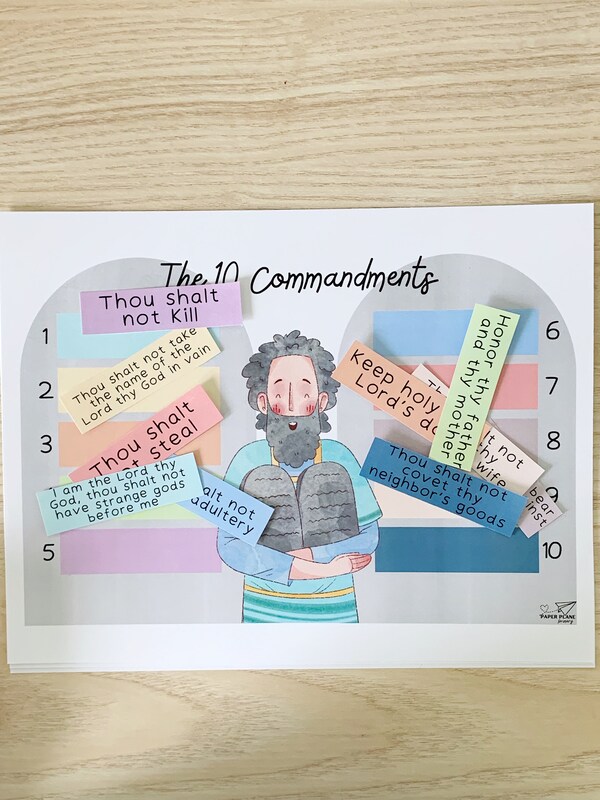 The 10 Commandments
Thou shalt
not Kill
1
2
3
5
Thou shalt not take
the name of the
Lord thy God in vain
Thou shalt
steal
I am the Lord thy
God, thou shalt not
have strange gods
before me
not
adultery
6
7
8
10
Honor thy father
and thy mother
Keep holy
Lord's
not
thy
wife
Thou shalt not
covet thy
neighbor's goods
bear
PAPER PLANE